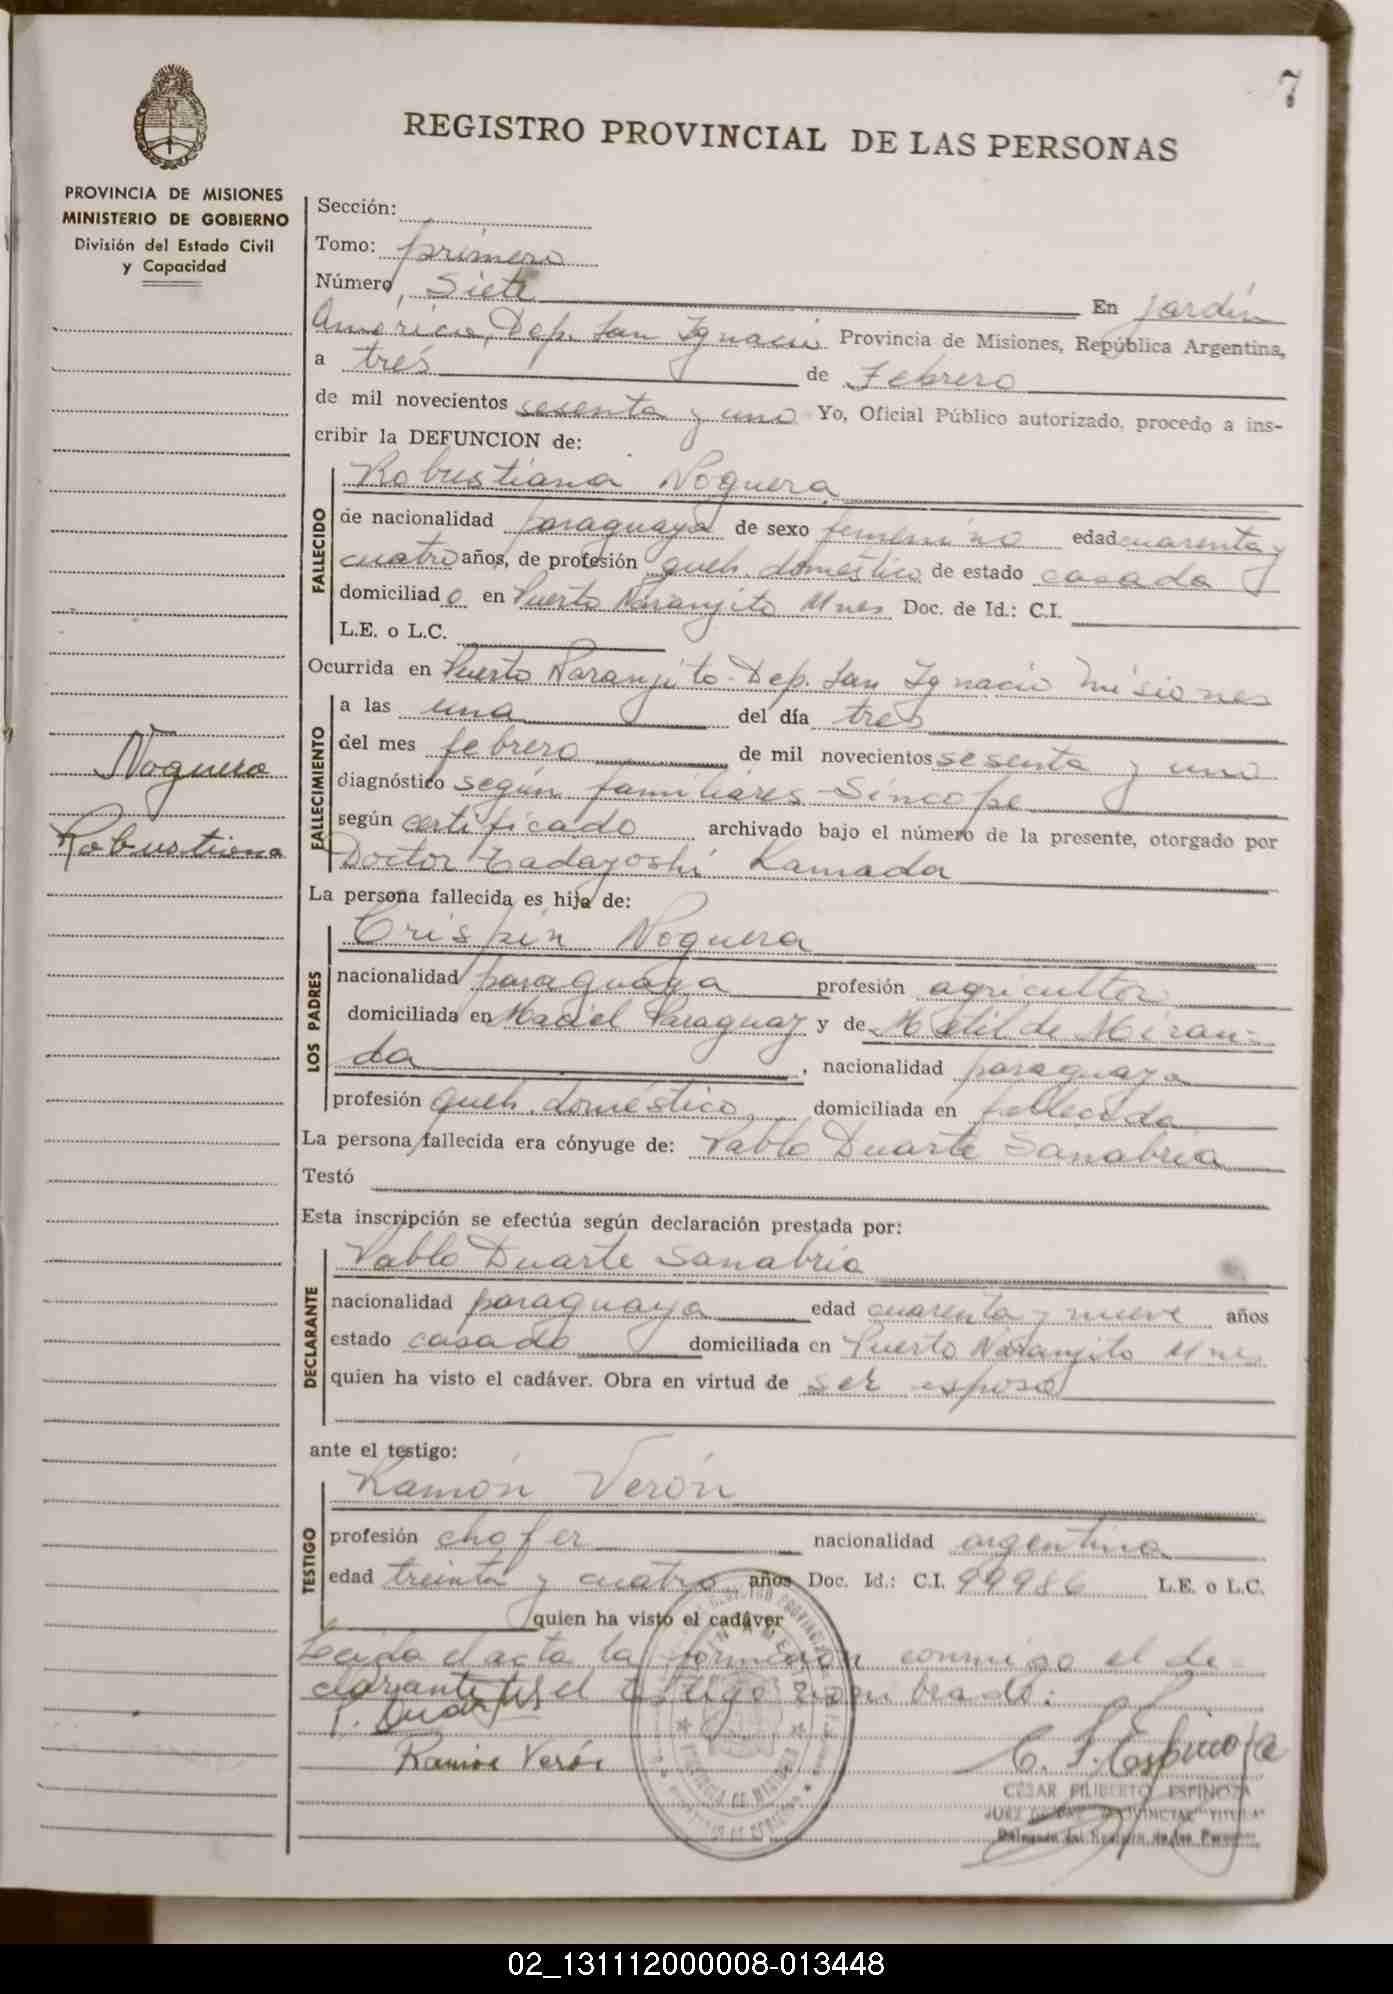 7
REGISTRO PROVINCIAL DE LAS PERSONAS
PROVINCIA DE MISIONES
MINISTERIO DE GOBIERNO
División del Estado Civil
y Capacidad
Sección:
Tomo: primero
Número, Siete En Jardín
América, Dep. San Ignacio Provincia de Misiones, República Argentina,
a tres de Febrero
de mil novecientos sesenta y uno Yo, Oficial Público autorizado, procedo a ins-
cribir la DEFUNCION de:
FALLECIDO
Robustiana Noguera
de nacionalidad paraguaya de sexo femenino edad cuarenta y
cuatro años, de profesión queh. doméstico de estado casada
domiciliad o en Puerto Naranjito Mnes Doc. de Id.: C.I.
L.E. o L.C.
Ocurrida en Puerto Naranjito Dep. San Ignacio Misiones
FALLECIMIENTO
a las una del día tres
del mes febrero de mil novecientos sesenta y uno
diagnóstico según familiares Síncope
según certificado archivado bajo el número de la presente, otorgado por
Doctor Tadayoshi Kamada
Noguera
Robustiana
La persona fallecida es hija de:
LOS PADRES
Crispín Noguera
nacionalidad paraguaya profesión agricultor
domiciliada en Maciel Paraguay y de Matilde Miran-
da, nacionalidad paraguaya
profesión queh. doméstico domiciliada en fallecida
La persona fallecida era cónyuge de: Pablo Duarte Sanabria
Testó
Esta inscripción se efectúa según declaración prestada por:
DECLARANTE
Pablo Duarte Sanabria
nacionalidad paraguaya edad cuarenta y nueve años
estado casado domiciliada en Puerto Naranjito Mnes
quien ha visto el cadáver. Obra en virtud de ser esposo
ante el testigo:
TESTIGO
Ramón Verón
profesión chofer nacionalidad argentina
edad treinta y cuatro años Doc. Id.: C.I. 99986 L.E. o L.C.
quien ha visto el cadáver
Leida el acta la conmigo el de
clarante y el testigo nombrado:
P. Duarte
Ramón Verón
C. F. Espinoza
CESAR FILIBERTO ESPINOZA
JUEZ DE PAZ PROVINCIAL "TITULAR"
Delegado del Registro de las Personas
02_131112000008-013448